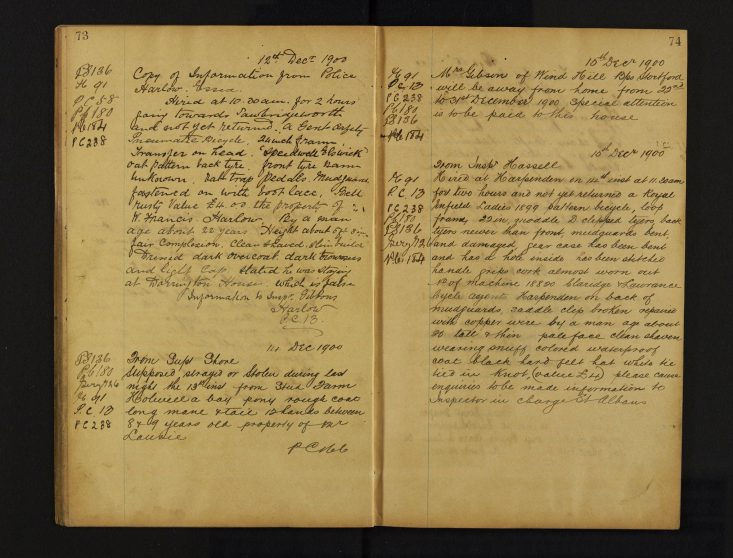 73
12th Decr 1900
PS 136
Pc 91
PC 58
Pc 180
Pc 184
PC 238
Copy of Information from Police
Harlow. Essex.
Hired at 10.30am. for 2 hours
going towards Sawbridgeworth
and not yet returned. A Gents Safety
Pneumatic Bicycle. 24 inch frame.
Transfer on head. Speedwell Elswick
Oat pattern back tyre. front tyre name
unknown. Rat trap Pedals. Mudguard
fastened on with boot lace, Bell
rusty Value £4.00 the property of
W. Francis. Harlow. By a man
age about 22 years Height about 5ft
fair Complexion. Clean Shaved. Slim build
Dressed dark overcoat. dark trousers
and light Cap. Stated he was staying
at Dorrington House. which is false
Information to Inspr. Gibbons
Harlow
PC 13
14 Dec 1900
PS 136
Pc 180
Serg 726
Pc 91
P.C 13
PC 238
From Supt Shore
Supposed strayed or Stolen during last
night the 13th inst from Stud Farm
Holwell a bay pony rough coat
long mane & tail 12 hands between
8 & 9 years old property of Mr
Laurie
74
10th Decr 1900
Pc 91
Pc 13
PC 238
Pc 180
PS 136
Pc 184
Mrs Gibson of Wind Hill Bps Stortford
will be away from home from 22nd
to 31st December 1900 special attention
is to be paid to this house
15th Decr 1900
From Inspr Hassell
Pc 91
P.C 13
PC 238
Pc 180
PS 136
Serg 726
Pc 184
Hired at Harpenden on 14th inst at 11.30am
for two hours and not yet returned a Royal
Enfield Ladies 1899 pattern bicycle, loop
frame, 22in, saddle D clipped tyers, back
tyers newer than front, mudguards bent
and damaged, gear case has been bent
and has a hole inside has been stitched
handle grips cork almost worn out
No of machine 18800 Claridge & Lawrance
Cycle agents Harpenden on back of
mudguards, saddle clip broken repaired
with copper wire by a man age about
30 tall & thin pale face clean shaven
wearing snuff colored waterproof
coat black hard felt hat white tie
tied in knot, (value £12) please cause
enquiries to be made information to
Inspector in charge St Albans